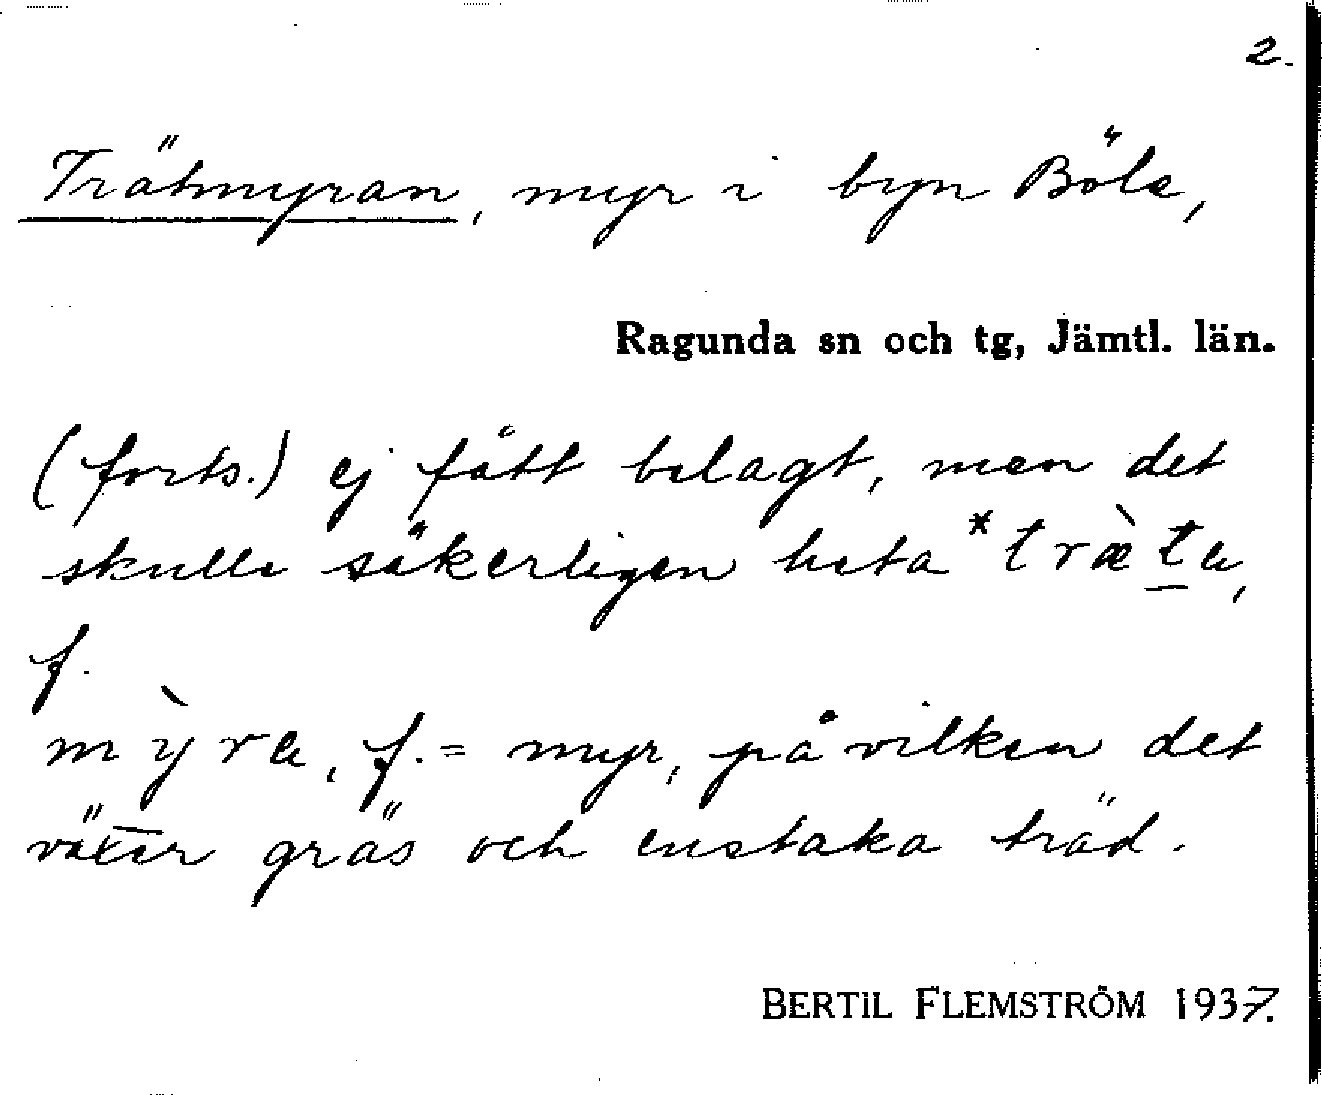 2.
Trätmyran, myr i byn Böle,
Ragunda sn och tg, Jämtl. län.
(forts.) ej fått belagt, men det
skulle säkerligen heta *træ̀ta,
f.
mỳra, f. = myr, på vilken det
växer gräs och enstaka träd.
BERTIL FLEMSTRÖM 1937.